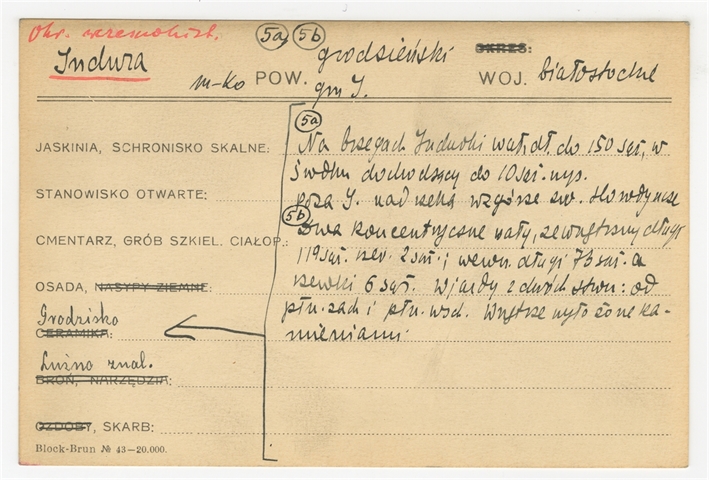 Okr. wczesnohist. 5a 5b
Indura m-ko POW. grodzieński WOJ. białostockie
gm I.
5a
JASKINIA, SCHRONISKO SKALNE: Na brzegach Indurki wał dł. do 150 sąż., w
środku dochodzący do 10 sąż. wys.
STANOWISKO OTWARTE: poza I. nad rzeką wzgórze zw.
5b Dwa koncentryczne wały, zewnętrzny długi
CMENTARZ, GRÓB SZKIEL. CIAŁOP.: 119 sąż. szer. 2 sąż. i wewn. długi 73 sąż. a
OSADA, NASYPY ZIEMNE: szeroki 6 sąż. Wjazdy z dwóch stron: od
Grodzisko płn. zach i płn. wsch. Wnętrze wyłożone ka-
CERAMIKA: mieniami.
Luźno znal.
BROŃ, NARZĘDZIA:
OZDOBY, SKARB:
Block-Brun № 43—20.000.